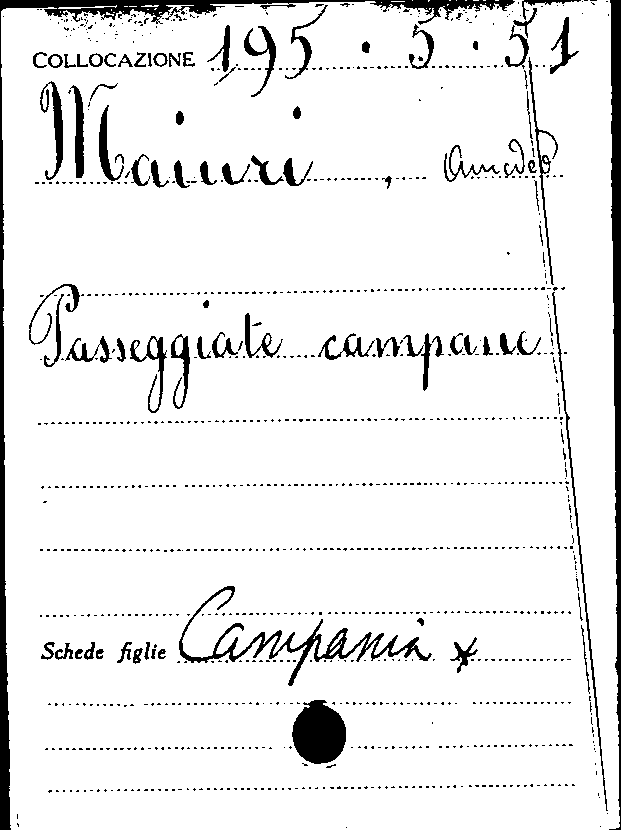 COLLOCAZIONE 195 . 5 . 51
Maiuri , Amedeo
Passeggiate campane
Schede figlie Campania x